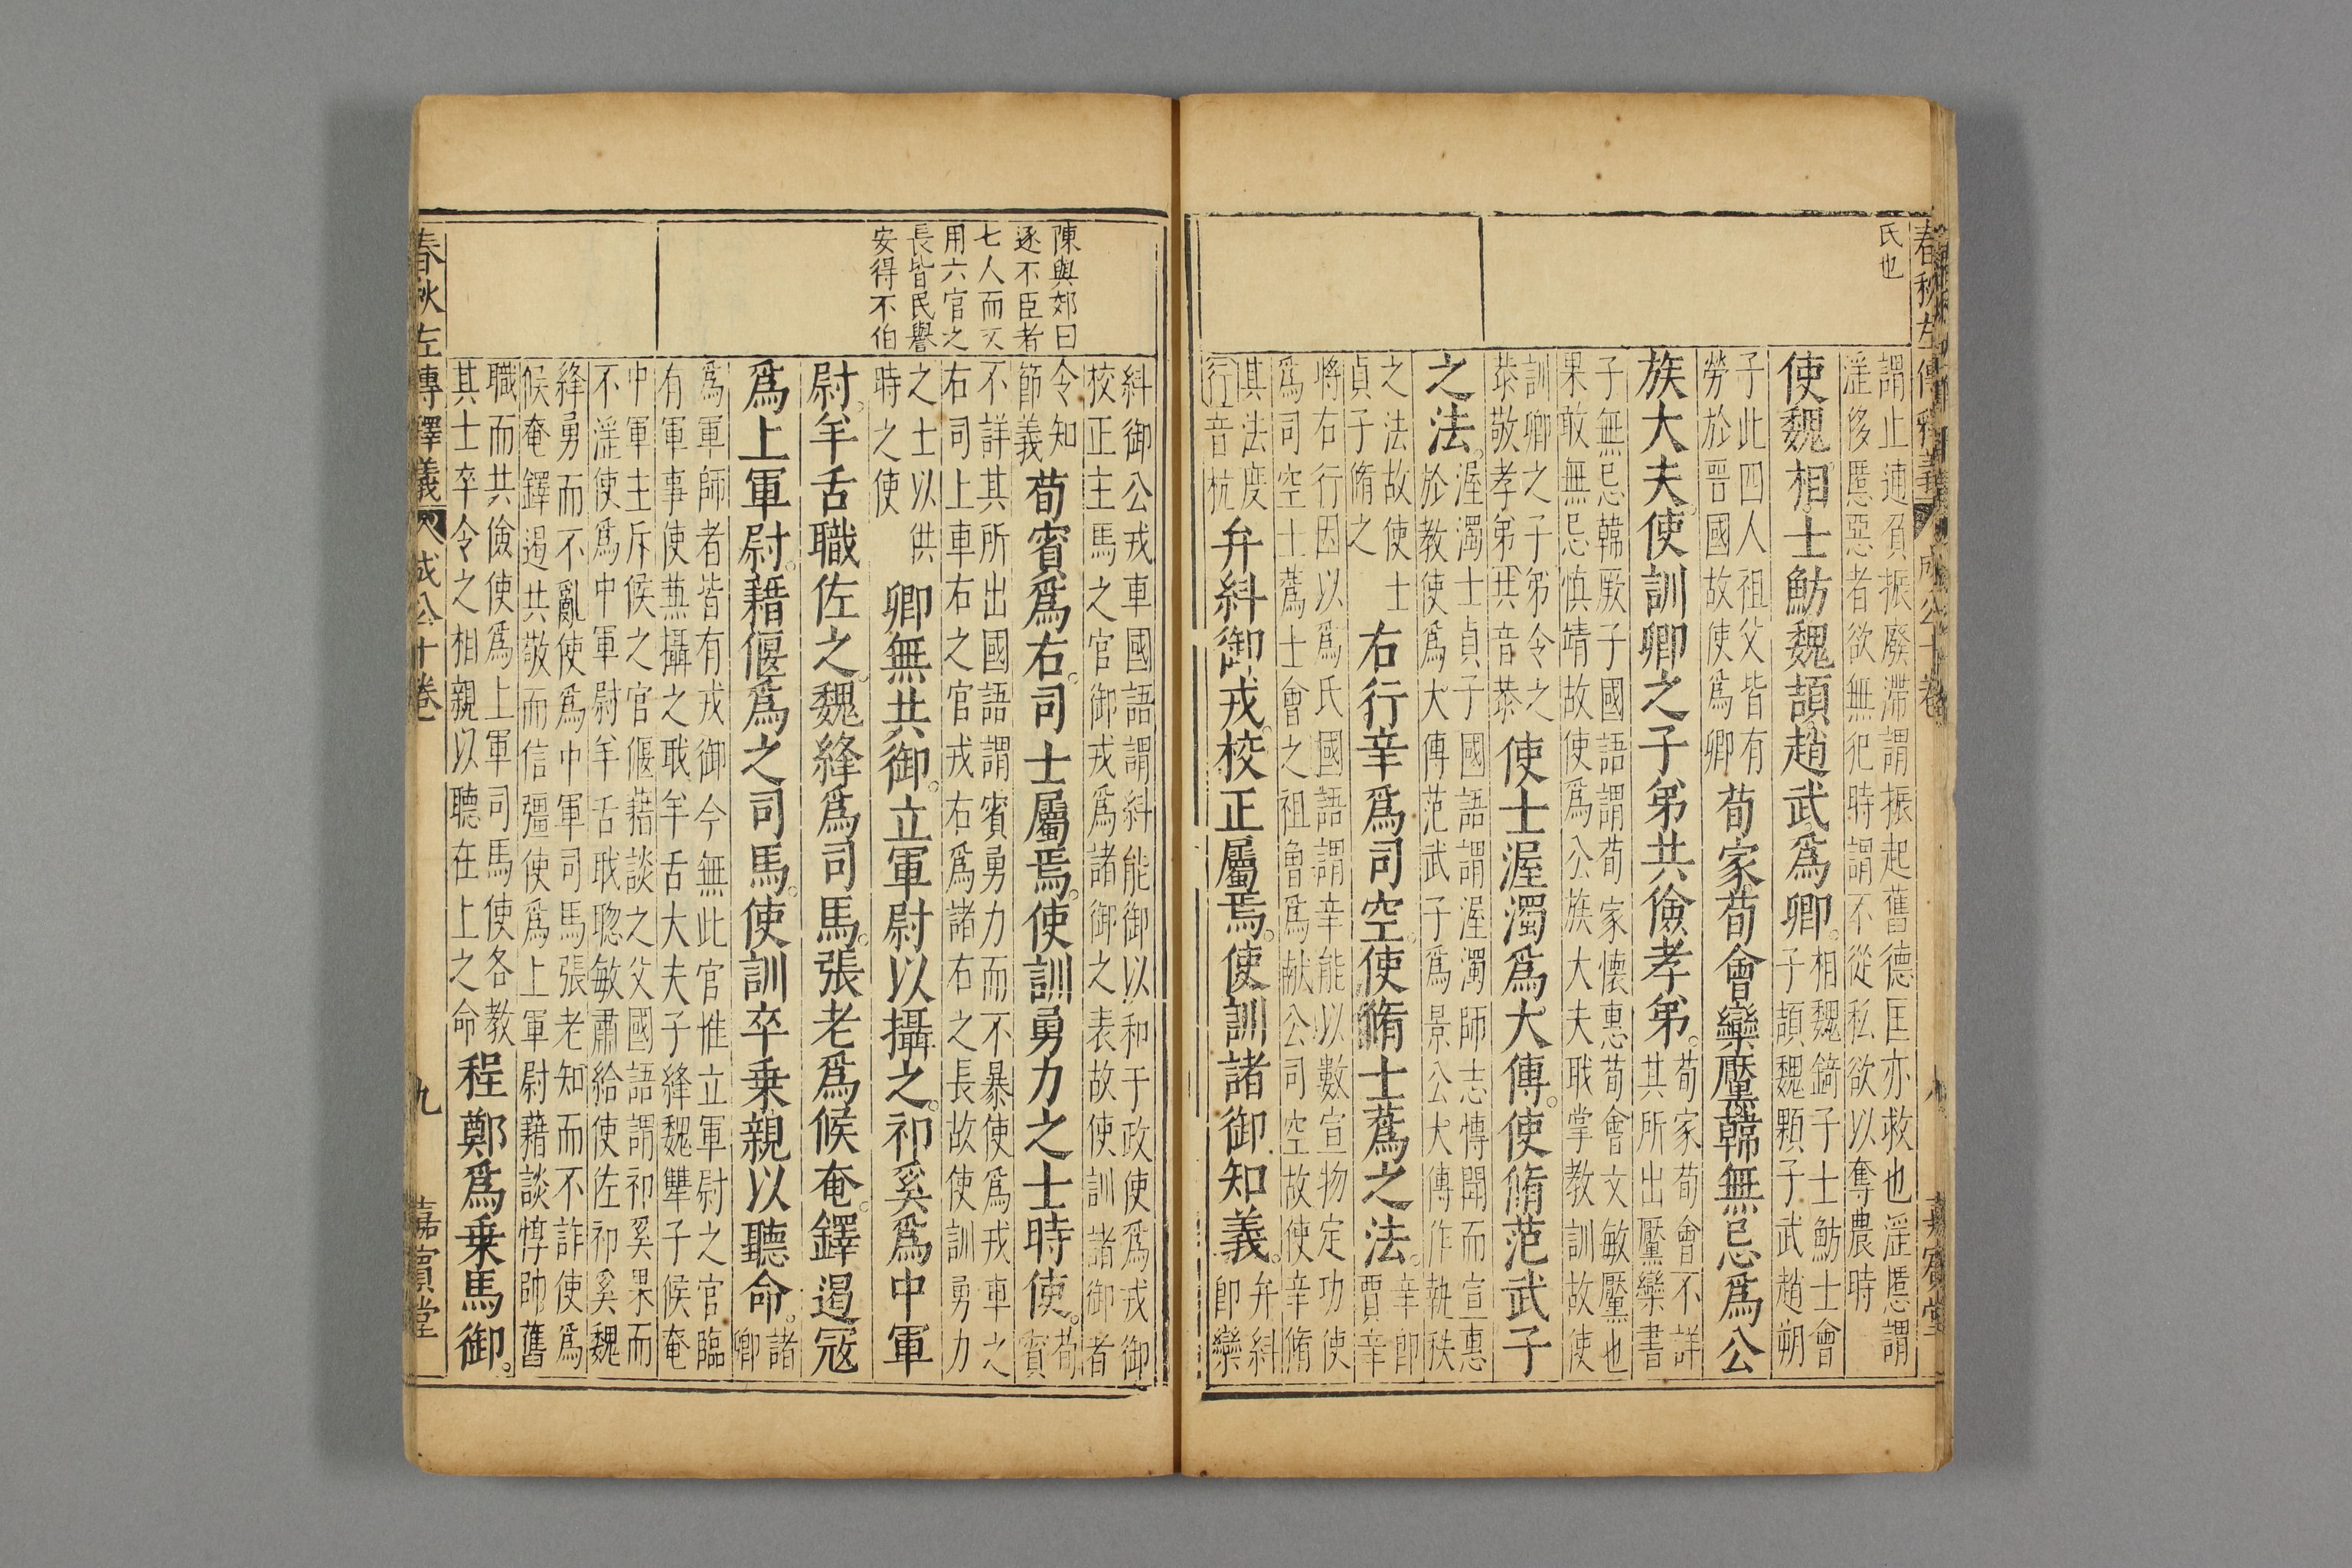 春秋左傳釋義 成公十卷 嘉賓堂
氏也
謂止逋負振廢滯謂振起舊德匡亦救也淫慝謂
淫侈慝惡者欲無犯時謂不從私欲以奪農時
使魏相士魴魏頡趙武爲卿。
相魏錡子士魴士會
子頡魏顆子武趙朔
子此四人祖父皆有
勞於晉國故使爲卿
荀家荀會欒黶韓無忌爲公
族大夫使訓卿之子弟共儉孝弟。
荀家荀會不詳
其所出黶欒書
子無忌韓厥子國語謂荀家懷惠荀會文敏黶也
果敢無忌慎靖故使爲公族大夫職掌教訓故使
訓卿之子弟令之
恭敬孝弟共音恭
使士渥濁爲大傅。使脩范武子
之法。
渥濁士貞子國語謂渥濁師志愽聞而宣惠
於教使爲大傅范武子爲景公大傅作執秩
之法故使士
貞子脩之
右行辛爲司空。使脩士蔿之法。
辛即
賈辛
將右行因以爲氏國語謂辛能以數宣物定功使
爲司空士蔿士會之祖曾爲献公司空故使辛脩
其法度
行音杭
弁糾御戎。校正屬焉。使訓諸御知義。
弁糾
即欒
陳與郊曰
逐不臣者
七人而又
用六官之
長皆民譽
安得不伯
糾御公戎車國語謂糾能御以和于政使爲戎御
校正主馬之官御戎爲諸御之表故使訓諸御者
令知
節義
荀賓爲右。司士屬焉。使訓勇力之士時使。
荀
賓
不詳其所出國語謂賓勇力而不暴使爲戎車之
右司上車右之官戎右爲諸右之長故使訓勇力
之士以供
時之使
卿無共御。立軍尉以攝之。祁奚爲中軍
尉。羊舌職佐之。魏絳爲司馬。張老爲候奄。鐸遏寇
爲上軍尉。藉偃爲之司馬。使訓卒乗親以聽命。
諸
卿
爲軍師者皆有戎御今無此官惟立軍尉之官臨
有軍事使兼攝之耳羊舌大夫子絳魏犨子候奄
中軍主斥候之官偃藉談之父國語謂祁奚果而
不淫使爲中軍尉羊舌職聦敏肅給使佐祁奚魏
絳勇而不亂使爲中軍司馬張老知而不詐使爲
候奄鐸遏共敬而信彊使爲上軍尉藉談惇帥舊
職而共儉使爲上軍司馬使各教
其士卒令之相親以聽在上之命
程鄭爲乗馬御。
春秋左傳釋義 成公十卷 九 嘉賓堂